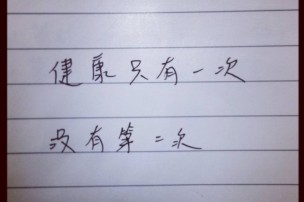 健康只有一次
没有第二次